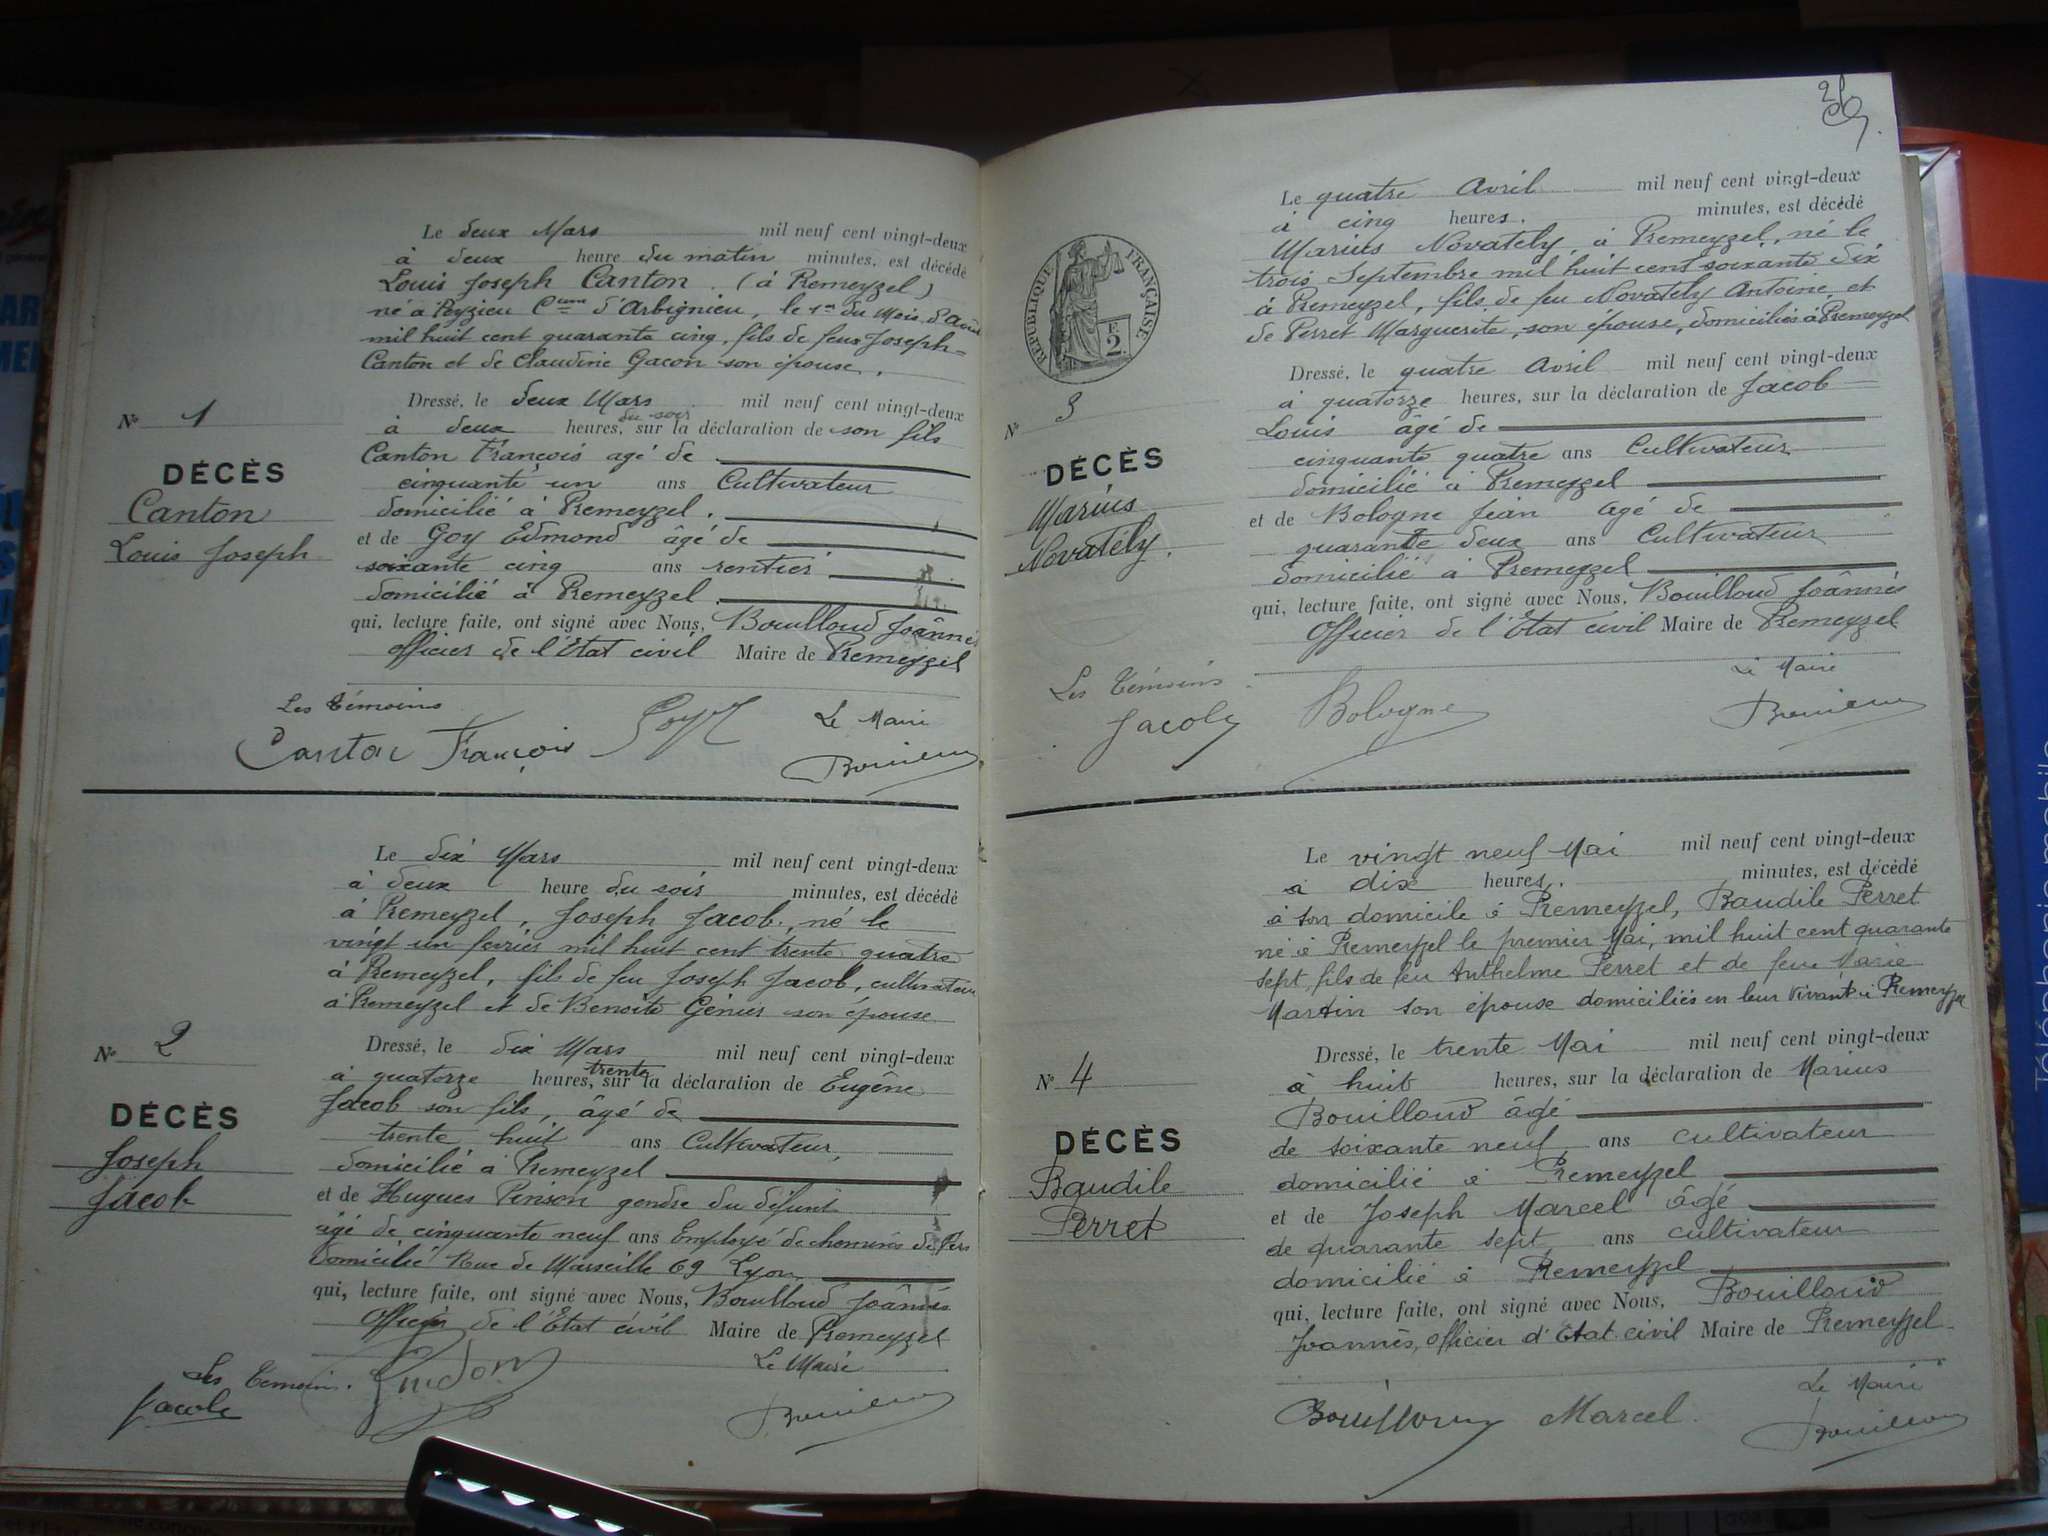 Le deux Mars mil neuf cent vingt-deux
à deux heure du matin minutes, est décédé
Louis Joseph Canton (à Premeyzel)
né à Peyzieu Cune d'Arbignieu, le 1er du Mois d'Août
mil huit cent quarante cinq, fils de feux Joseph
Canton et de Claudine Gacon son épouse.
Dressé, le deux Mars mil neuf cent vingt-deux
à deux heures, du soir sur la déclaration de son fils
Canton François agé de
cinquante un ans Cultivateur
domicilié à Premeyzel.
et de Goy Edmond âgé de
soixante cinq ans rentier
domicilié à Premeyzel
qui, lecture faite, ont signé avec Nous, Bouilloud Joânnès
Officier de l'Etat civil Maire de Premeyzel
Les témoins Le Maire
Canton François Goy
N° 1
DÉCÈS
Canton
Louis Joseph
Le dix Mars mil neuf cent vingt-deux
à deux heure du soir minutes, est décédé
à Premeyzel, Joseph Jacob, né le
vingt un février mil huit cent trente quatre
à Premeyzel, fils de feu Joseph Jacob, cultivateur
à Premeyzel et de Benoite Génier son épouse
Dressé, le dix Mars mil neuf cent vingt-deux
à quatorze heures, trente sur la déclaration de Eugêne
Jacob son fils, âgé de
trente huit ans Cultivateur,
domicilié à Premeyzel
et de Hugues Pinson gendre du défunt
âgé de cinquante neuf ans Employé de chemins de fers
domicilié Rue de Marseille 69 Lyon
qui, lecture faite, ont signé avec Nous, Bouilloud Joânnès
Officier de l'Etat civil Maire de Premeyzel
Les temoins. Le Maire
Jacob
N° 2
DÉCÈS
Joseph
Jacob
RÉPUBLIQUE FRANÇAISE
F.
2
Le quatre Avril mil neuf cent vingt-deux
à cinq heures. minutes, est décédé
Marius Novately, à Premeyzel, né le
trois Septembre mil huit cent soixante dix
à Premeyzel, fils de feu Novately Antoine et
de Perret Marguerite, son épouse, domiciliés à Premeyzel
Dressé, le quatre Avril mil neuf cent vingt-deux
à quatorze heures, sur la déclaration de Jacob
Louis âgé de
cinquante quatre ans Cultivateur
domicilié à Premeyzel
et de Bologne Jean âgé de
quarante deux ans Cultivateur
domicilié à Premeyzel
qui, lecture faite, ont signé avec Nous, Bouilloud Joânnès
Officier de l'Etat civil Maire de Premeyzel
Les témoins. Le Maire
Jacob Bologne
N° 3
DÉCÈS
Marius
Novately.
Le vingt neuf Mai mil neuf cent vingt-deux
à dix heures, minutes, est décédé
à son domicile à Premeyzel, Baudile Perret
né à Premeyzel le premier Mai, mil huit cent quarante
sept, fils de feu Anthelme Perret et de feue Marie
Martin son épouse domiciliés en leur vivant à Premeyzel
Dressé, le trente Mai mil neuf cent vingt-deux
à huit heures, sur la déclaration de Marius
Bouilloud âgé
de soixante neuf ans cultivateur
domicilié à Premeyzel
et de Joseph Marcel âgé
de quarante sept ans cultivateur
domicilié à Premeyzel
qui, lecture faite, ont signé avec Nous, Bouilloud
Joannès, officier d'Etat civil Maire de Premeyzel
Le Maire
Bouilloud Marcel
N° 4
DÉCÈS
Baudile
Perret
Téléphonie mobile